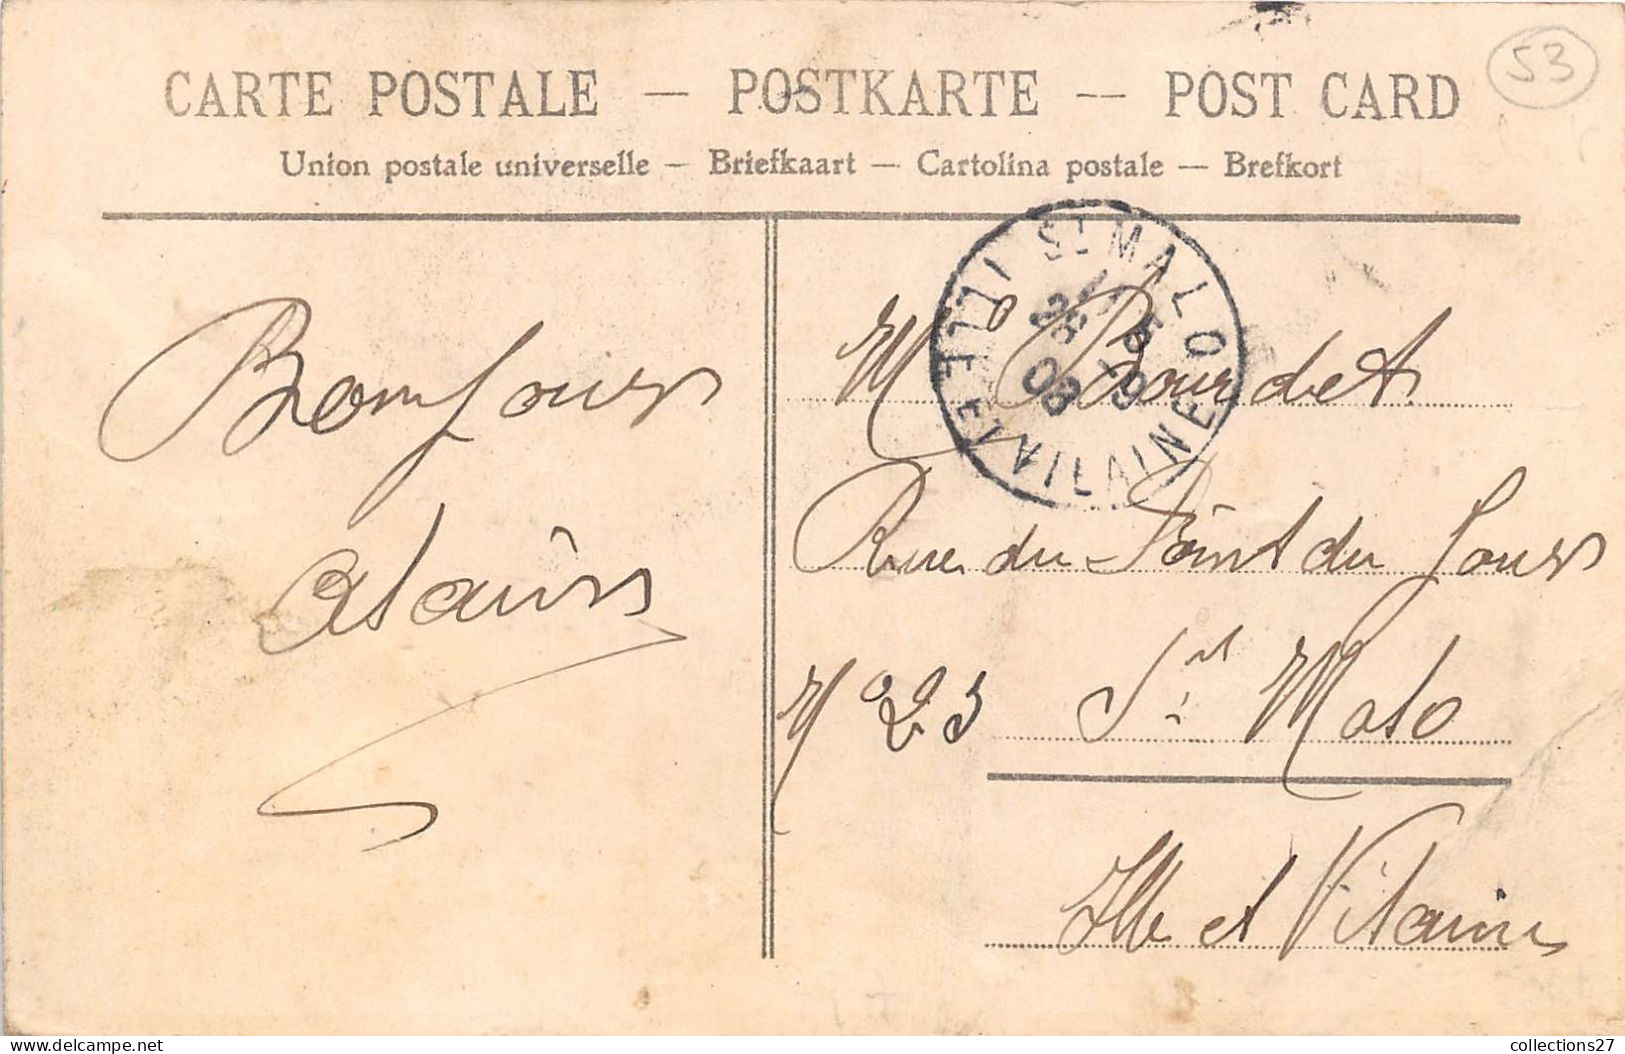 CARTE POSTALE — POSTKARTE — POST CARD
53
Union postale universelle — Briefkaart — Cartolina postale — Brefkort
Bonjour
ST MALO
ILLE-ET-VILAINE
28
08
M Bourdet
Rue du Point du Jour
N° 23
St Malo
Ille et Vilaine
collections27